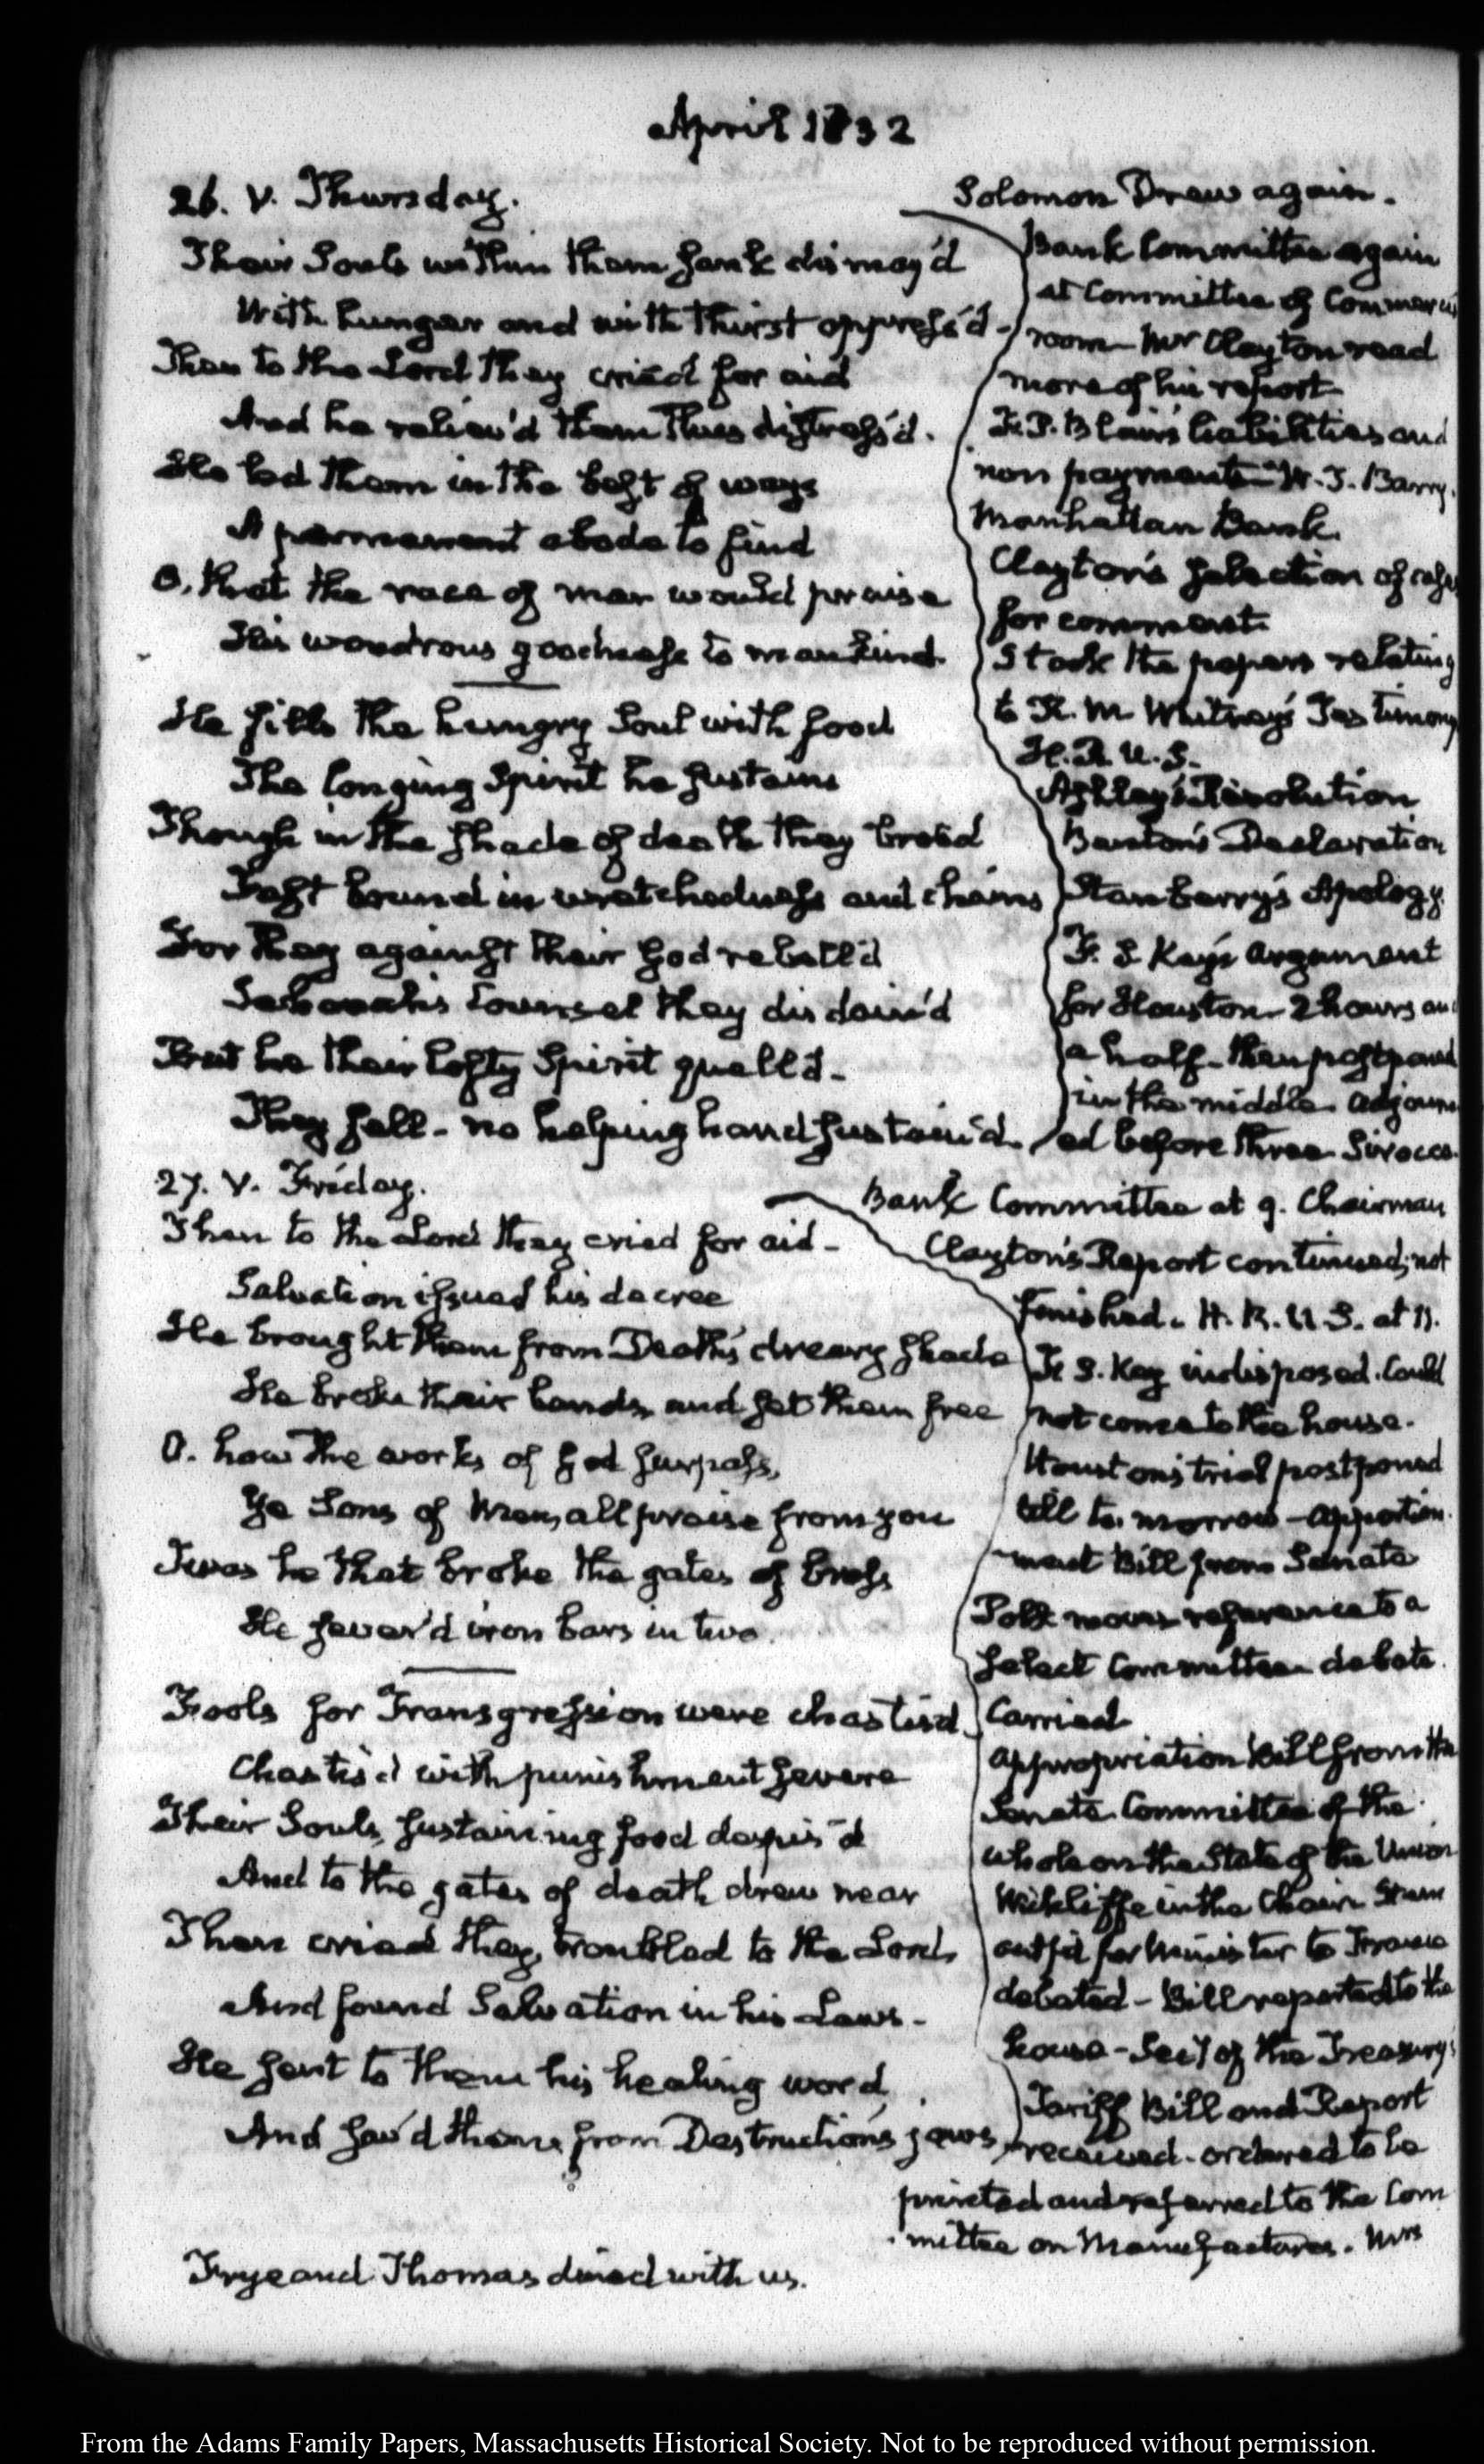 April 1832
26. V. Thursday.
Their Souls within them sank dismay'd
With hunger and with thirst oppress'd -
Then to the Lord they cried for aid
And he reliev'd them thus distress'd.
He led them in the best of ways
A permanent abode to find
O, that the race of man would praise
His wondrous goodness to mankind.
He fills the hungry Soul with food
The longing Spirit he sustains
Though in the shade of death they brood
Fast bound in wretchedness and chains
For they against their God rebell'd
Jehovah's Counsel they disdain'd
But he their lofty Spirit quell'd -
They fell - no helping hand sustain'd.
Solomon Drew again.
Bank Committee again
at Committee of Commerce
room - Mr Clayton read
more of his report
F. P. Blair's liabilities and
non payments - W. T. Barry.
Manhattan Bank.
Clayton's selection of cases
for comment.
I took the papers relating
to R. M. Whitney's Testimony
H. R. U. S.
Ashley's Resolution
Declaration
Stanberry's Apology.
F. S. Key's argument
for Houston - 2 hours and
a half - then postponed
in the middle. adjourn
ed before three. Sirocco.
27. V. Friday.
Then to the Lord they cried for aid -
Salvation issued his decree
He brought them from Death's dreary shade
He broke their bands, and set them free
O. how the works of God surpass,
Ye Sons of Men, all praise from you
Twas he that broke the gates of brass
He sever'd iron bars in two.
Fools for Transgression were chastis'd
Chastis'd with punishment severe
Their Souls, sustaining food despis'd
And to the gates of death drew near
Then cried they, troubled to the Lord,
And found Salvation in his Laws -
He sent to them his healing word,
And sav'd them from Destruction's jaws
Bank Committee at 9. Chairman
Clayton's Report continued; not
finished. H. R. U. S. at 11.
F. S. Key indisposed. Could
not come to the house.
Houston's trial postponed
till to-morrow - apportion-
ment Bill from Senate
Polk moves reference to a
select Committee - debate.
Carried
Appropriation Bill from the
Senate. Committee of the
whole on the State of the Union
Wickliffe in the Chair.
outfit for Minister to France
debated - Bill reported to the
house - Secy of the Treasury's
Tariff Bill and Report
received - ordered to be
printed and referred to the Com
mittee on Manufactures. Mrs
Frye and Thomas dined with us.
From the Adams Family Papers, Massachusetts Historical Society. Not to be reproduced without permission.